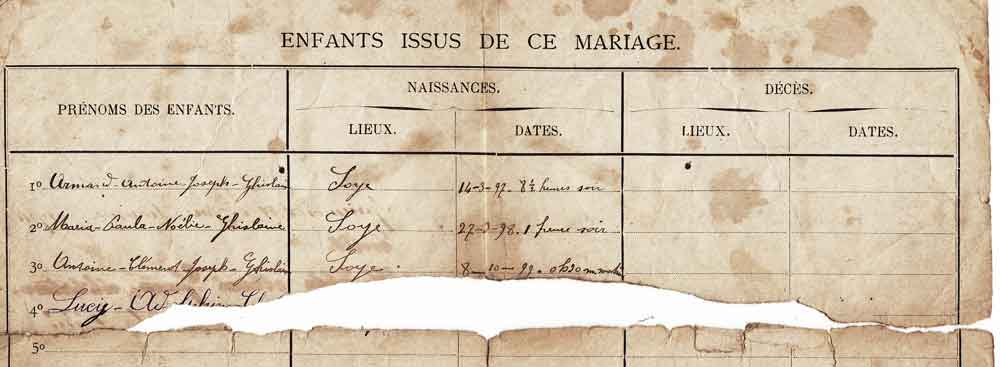 ENFANTS ISSUS DE CE MARIAGE.
PRÉNOMS DES ENFANTS.
NAISSANCES.
DÉCÈS.
LIEUX. DATES. LIEUX. DATES.
1º Armand-Antoine-Joseph-Ghislain Soye 14-3-97. 8½ heures soir
2º Maria-Paula-Noélie-Ghislaine Soye 27-3-98. 1 heure soir
3º Antoine-Clément-Joseph-Ghislain Soye. 8-10-99. 0h30m
4º Lucy-
5º